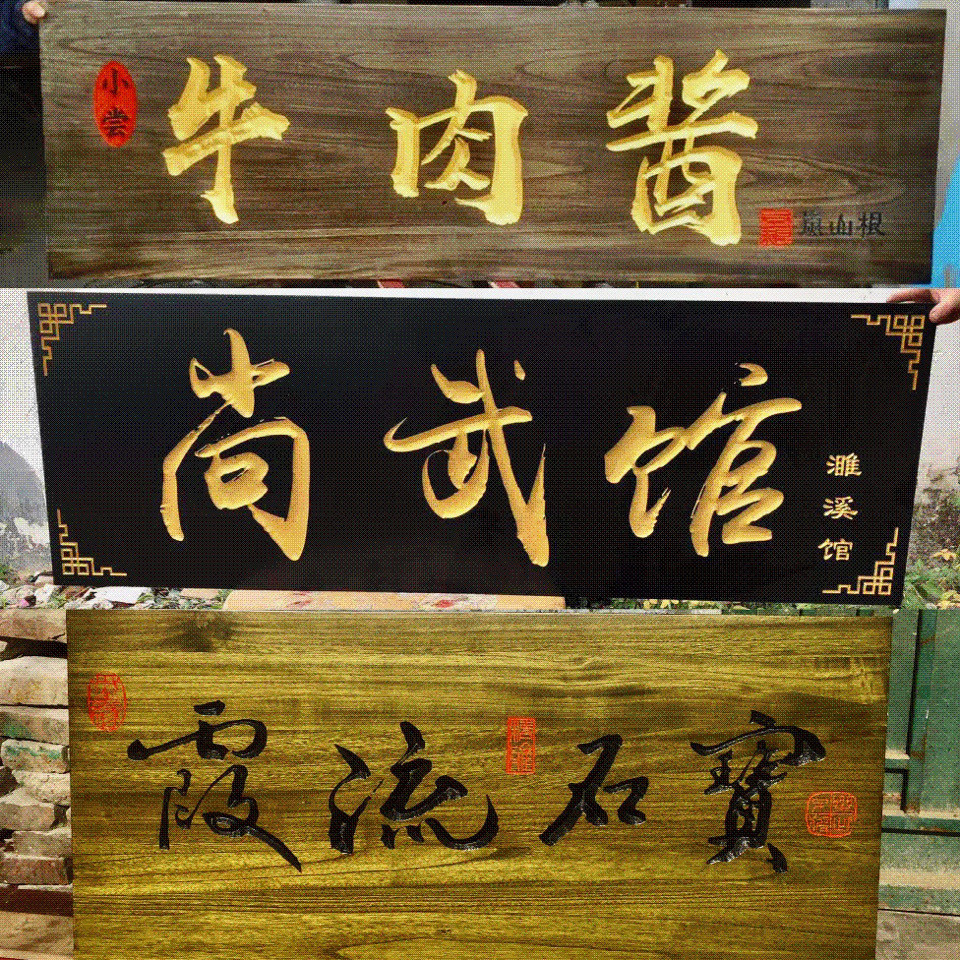 小尝
牛肉酱
嵐山根
尚武馆
濉溪馆
霞流石寶